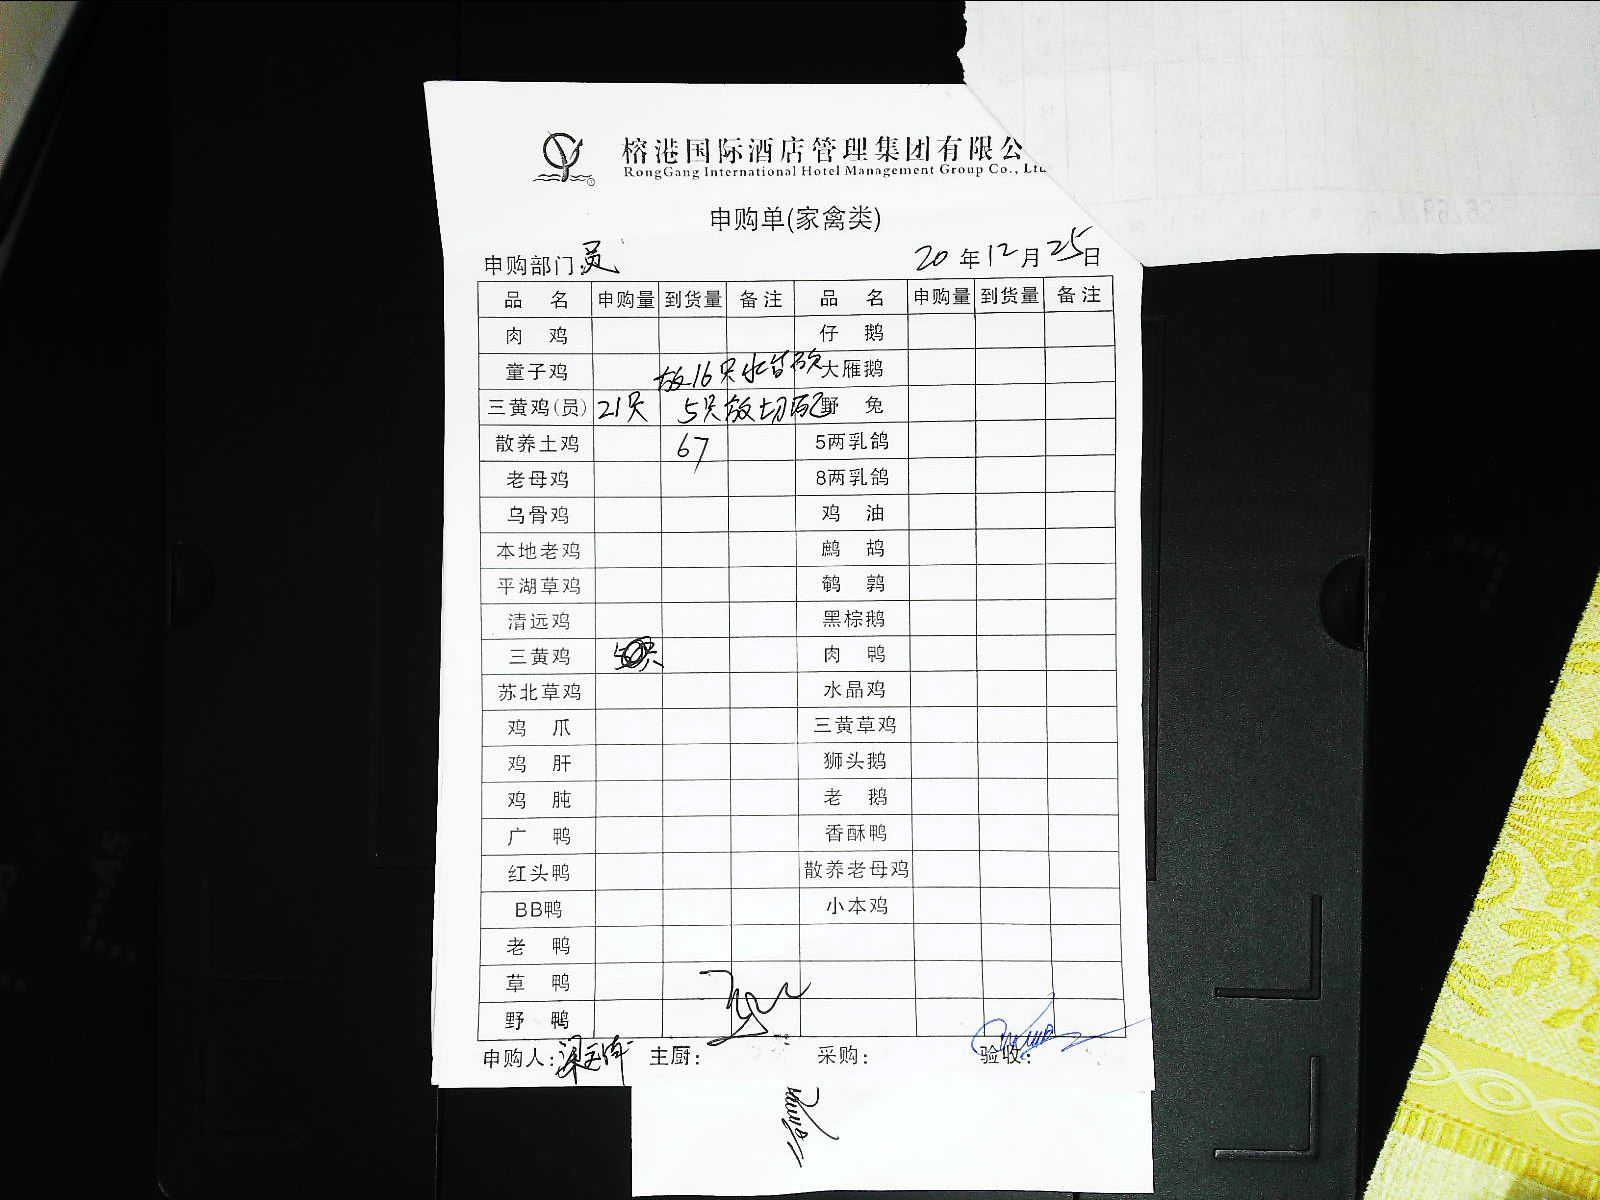 榕港国际酒店管理集团有限公
RongGang International Hotel Management Group Co., Ltd
申购单(家禽类)
申购部门:员 20年12月25日
品名 申购量 到货量 备注 品名 申购量 到货量 备注
肉鸡 仔鹅
童子鸡 放16只水台砍 大雁鹅
三黄鸡(员) 21只 5只放切配 野兔
散养土鸡 67 5两乳鸽
老母鸡 8两乳鸽
乌骨鸡 鸡油
本地老鸡 鹧鸪
平湖草鸡 鹌鹑
清远鸡 黑棕鹅
三黄鸡 肉鸭
苏北草鸡 水晶鸡
鸡爪 三黄草鸡
鸡肝 狮头鹅
鸡肫 老鹅
广鸭 香酥鸭
红头鸭 散养老母鸡
BB鸭 小本鸡
老鸭
草鸭
野鸭
申购人: 主厨: 采购: 验收: